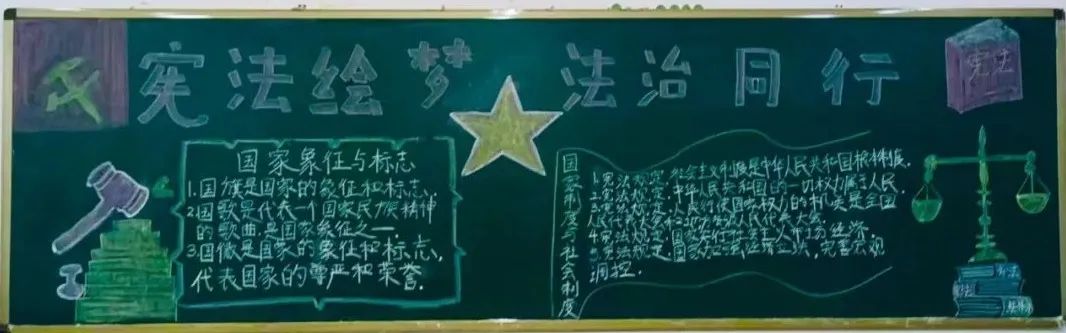 宪法绘梦 法治同行
宪法
国家象征与标志
1.国旗是国家的象征和标志、
2.国歌是代表一个国家民族精神
的歌曲.是国家象征之一.
3.国徽是国家的象征和标志,
代表国家的尊严和荣誉.
国家制度与社会制度
1.宪法规定:社会主义制度是中华人民共和国根本制度.
2.宪法规定:中华人民共和国的一切权力属于人民.
3.宪法规定:人民行使国家权力的机关是全国
人民代表大会和地方各级人民代表大会.
4.宪法规定:国家实行社会主义市场经济.
5.宪法规定:国家加强经济立法,完善宏观
调控.